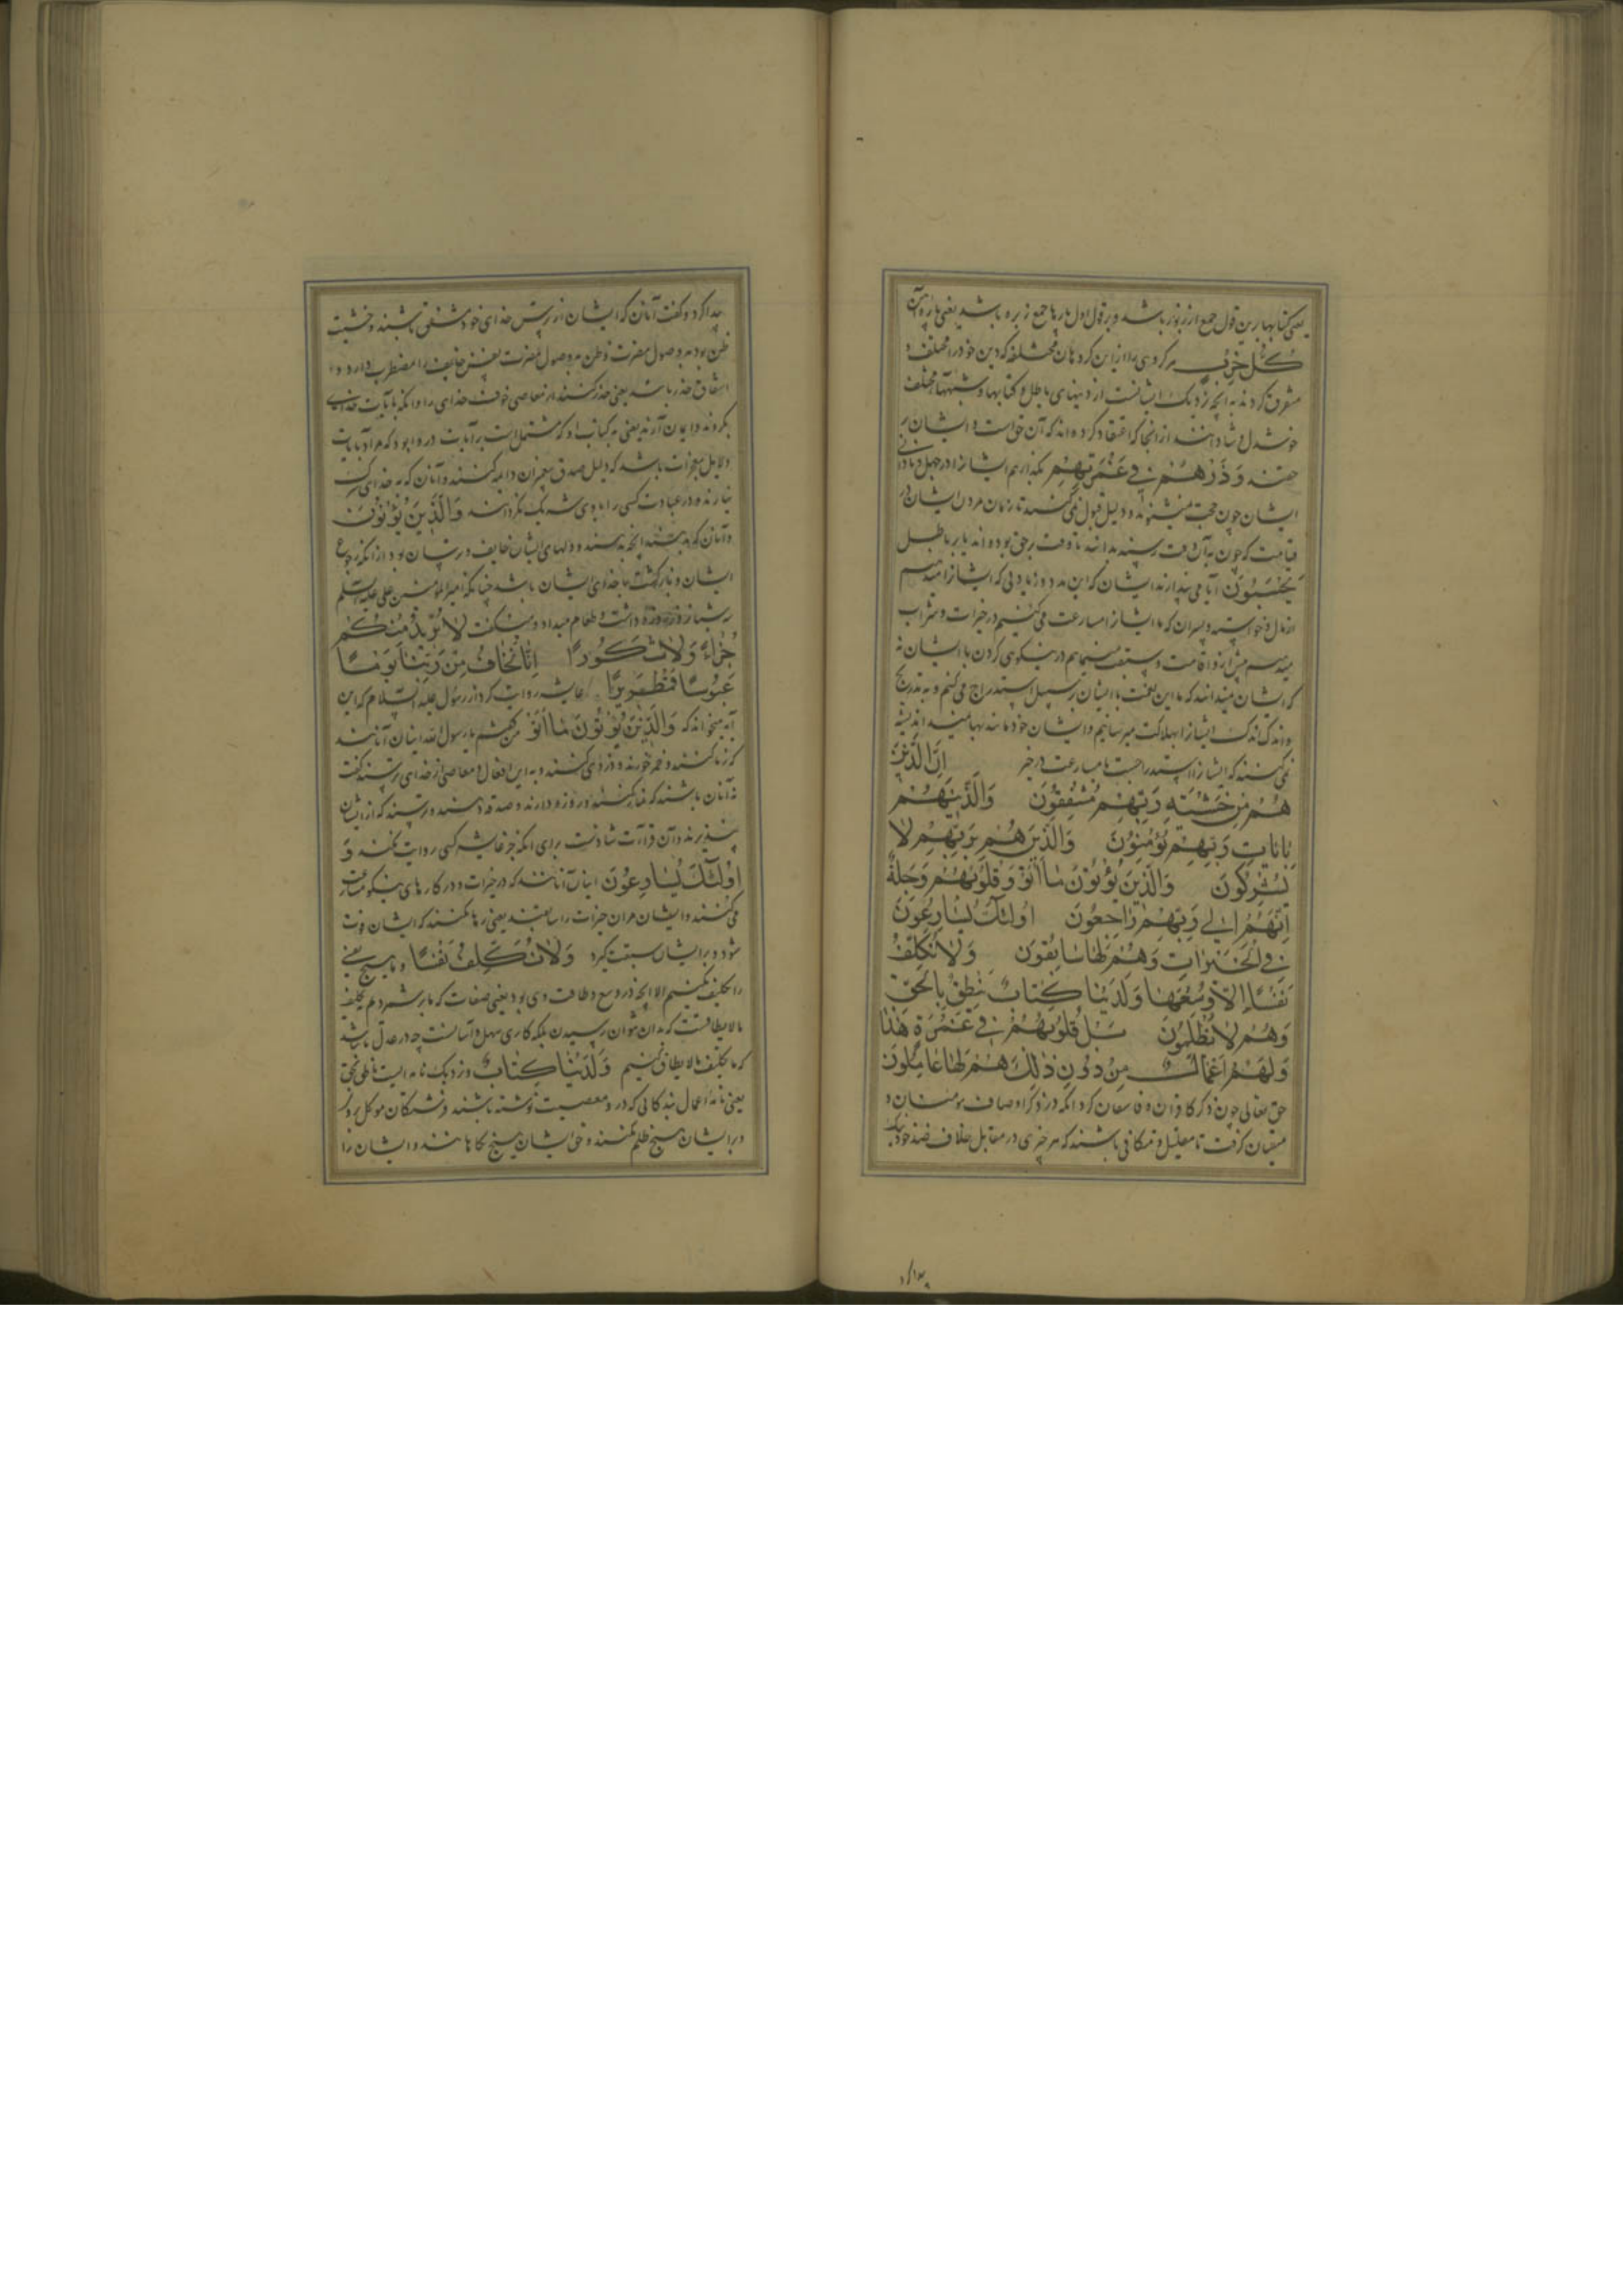 یعنی کتابها برین قول جمع زبور باشد و بر قول اول پارها جمع زبره باشد یعنی پاره آهن
كُلُّ حِزْبٍ هر کروهی را از این کروهان مختلفه که دین خود را مختلف و
متفرق کردند به آنچه نزدیک ایشانست از دینهای باطل و کتابها و شبهتها مختلف
خوشدل و شادانند از آنجا که اعتقاد کرده اند که آن حق است و ایشان بر
حقند وَذَرْهُمْ فِي غَمْرَتِهِمْ بگذار هم ایشانرا در جهل و نادانی
ایشان چون حجت میشنوند و دلیل قبول نمی کنند تا زمان مردن ایشان و
قیامت که چون به آن وقت رسند بدانند تا وقت برحق بوده اند یا بر باطل
يَحْسَبُونَ آیا می پندارند ایشان که این مدد و زیادتی که ایشانرا میدهیم
از مال و خواسته و پسران که ما ایشانرا مسارعت می کنیم در خیرات و ثواب
میدهیم پیش از وقت و سبقت مینماییم در نیکوی کردن با ایشان نه
که ایشان میدانند که ما این نعمت با ایشان بر سبیل استدراج می کنیم و به تدریج
و اندک اندک ایشانرا بهلاکت میرسانیم و ایشان خود مانند بهایمند اندیشه
نمی کنند که ایشانرا استدراجست یا مسارعت در خیر إِنَّ الَّذِينَ
هُمْ مِنْ خَشْيَةِ رَبِّهِمْ مُشْفِقُونَ وَالَّذِينَ هُمْ
بِآيَاتِ رَبِّهِمْ يُؤْمِنُونَ وَالَّذِينَ هُمْ بِرَبِّهِمْ لَا
يُشْرِكُونَ وَالَّذِينَ يُؤْتُونَ مَا آتَوْا وَقُلُوبُهُمْ وَجِلَةٌ
أَنَّهُمْ إِلَى رَبِّهِمْ رَاجِعُونَ أُولَئِكَ يُسَارِعُونَ
فِي الْخَيْرَاتِ وَهُمْ لَهَا سَابِقُونَ وَلَا نُكَلِّفُ
نَفْسًا إِلَّا وُسْعَهَا وَلَدَيْنَا كِتَابٌ يَنْطِقُ بِالْحَقِّ
وَهُمْ لَا يُظْلَمُونَ بَلْ قُلُوبُهُمْ فِي غَمْرَةٍ هَذَا
وَلَهُمْ أَعْمَالٌ مِنْ دُونِ ذَلِكَ هُمْ لَهَا عَامِلُونَ
حق تعالی چون ذکر کافران و فاسقان کرد آنکه در ذکر اوصاف مؤمنان و
متقیان کرفت تا متقابل و متکافی باشند که هر چیزی در مقابل خلاف ضد خود
پیدا کردد و کفت آنان که ایشان از ترس خدای خود مشفق باشند و خشیت
ظن بود به وصول مضرت و ظن به وصول مضرت نفس خایف را مضطرب دارد و
اشفاق حذر باشد یعنی حذر کنند از معاصی خوف خدای را و آنکه بآیات خدای
بکروند و ایمان آرند یعنی به کتاب او که مشتمل است بر آیات و روا بود که مراد بآیات
دلایل معجزات باشد که دلیل صدق پیغمبران دانند و آنان که به خدای شرک
نیارند و در عبادت کسی را با وی شریک نکردانند وَالَّذِينَ يُؤْتُونَ
و آنان که بدهند آنچه بدهند و دلهای ایشان خایف و ترسان بود از آنکه رجوع
ایشان و بازکشت با خدای ایشان باشد چنانکه امیر المؤمنین علی علیه السلم
سه شبانروز روزه داشت و طعام میداد و میکفت لَا نُرِيدُ مِنْكُمْ
جَزَاءً وَلَا شُكُورًا إِنَّا نَخَافُ مِنْ رَبِّنَا يَوْمًا
عَبُوسًا قَمْطَرِيرًا عایشه روایت کرد از رسول علیه السلام که این
آیه میخواند که وَالَّذِينَ يُؤْتُونَ مَا آتَوْا من کفتم یا رسول الله اینان آنانند
که زنا کنند و خمر خورند و دزدی کنند و به این افعال و معاصی از خدای ترسند کفت
نه آنان باشند که نماز کنند و روزه دارند و صدقه دهند و ترسند که از ایشان
نپذیرند و آن قراءت شاذست برای آنکه جز عایشه کسی روایت نکند و
أُولَئِكَ يُسَارِعُونَ اینان آنانند که در خیرات و در کارهای نیکو مسارعت
می کنند و ایشان مر آن خیرات را سابقند یعنی رها نکنند که ایشان فوت
شود و بر ایشان سبقت گیرد وَلَا نُكَلِّفُ نَفْسًا و ما هیچ نفسی
را تکلیف نکنیم الا آنچه در وسع و طاقت وی بود یعنی صفات که ما بر شمردیم تکلیف
مالایطاق نیست که بدان نتوان رسیدن بلکه کاری سهل و آسانست چه در عدل ما نباشد
که ما تکلیف مالایطاق کنیم وَلَدَيْنَا كِتَابٌ و نزدیک ما نامه ایست ناطق بحق
یعنی نامه اعمال بندکانی که در و معصیت نوشته باشند فرشتکان موکل برو
و بر ایشان هیچ ظلم نکنند و حق ایشان هیچ نکاهانند و ایشان را